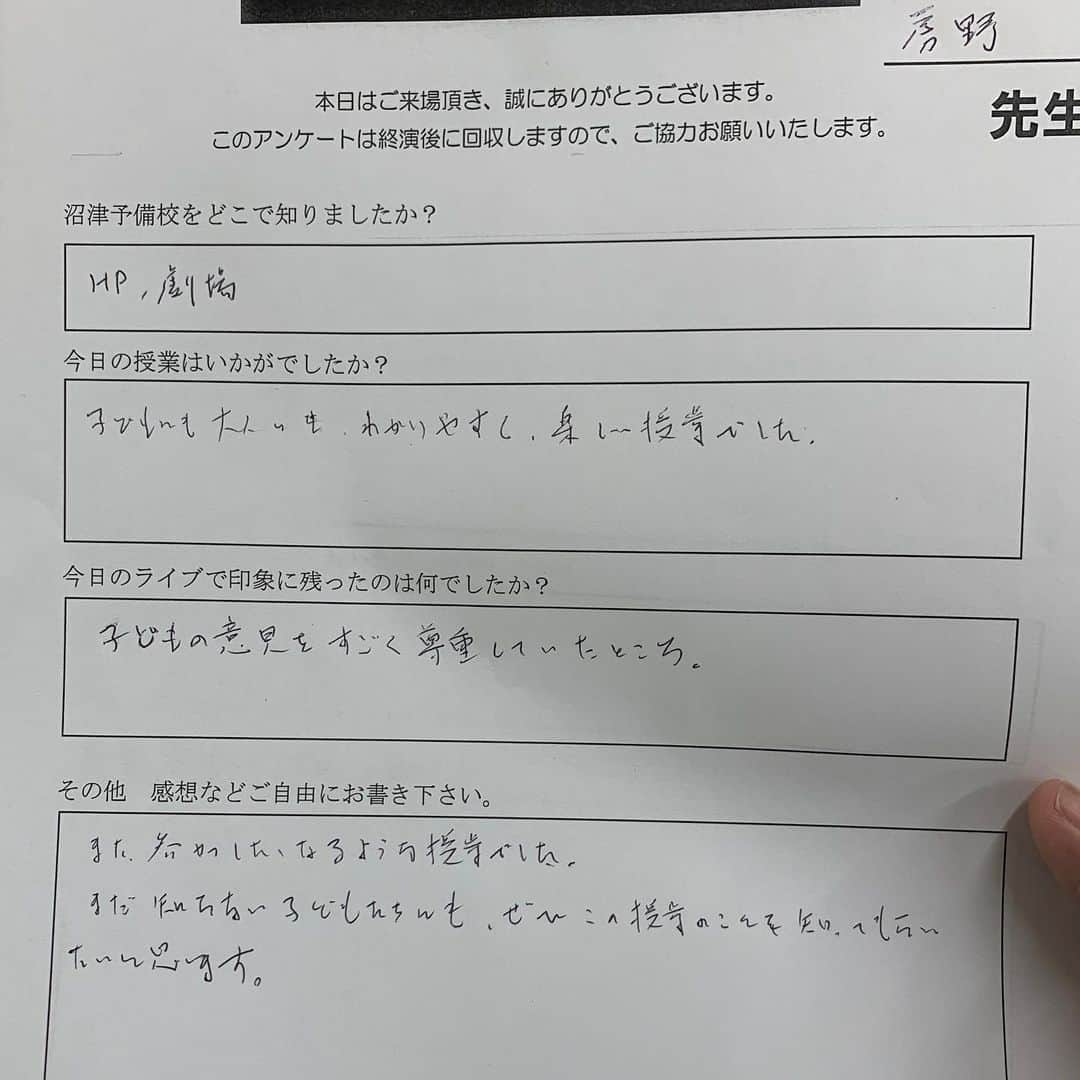 房野
先生
本日はご来場頂き、誠にありがとうございます。
このアンケートは終演後に回収しますので、ご協力お願いいたします。
沼津予備校をどこで知りましたか？
HP,劇場
今日の授業はいかがでしたか？
子どもにも大人にも、わかりやすく、楽しい授業でした。
今日のライブで印象に残ったのは何でしたか？
子どもの意見をすごく尊重していたところ。
その他　感想などご自由にお書き下さい。
また、参加したくなるような授業でした。
まだ知らない子どもたちにも、ぜひこの授業のことを知ってもらい
たいと思います。